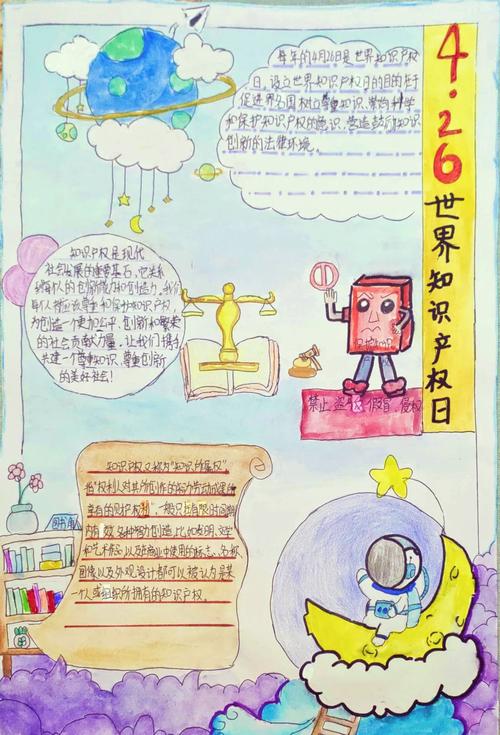 4·26世界知识产权日
每年的4月26日是世界知识产权
日,设立世界知识产权日的目的在于
促进各国树立尊重知识、崇尚科学
和保护知识产权的意识,营造鼓励知识
创新的法律环境。
知识产权是现代
社会发展的重要基石,它关系
到每个人的创新能力和创造力,我们
每个人都应该尊重和保护知识产权
为创造一个更加公平、创新和繁荣
的社会贡献力量,让我们携手
共建一个尊重知识、尊重创新
的美好社会!
禁止盗 假冒、侵权
知识产权又称为"知识所属权"
指"权利人对其所创作的智力劳动成果所
享有的财产权利",一般只在有限时间期
内有效,各种智力创造,比如发明、文学
和艺术作品,以及在商业中使用的标志、名称
图像以及外观设计都可以被认为是某
一个人或组织所拥有的知识产权。
图书角